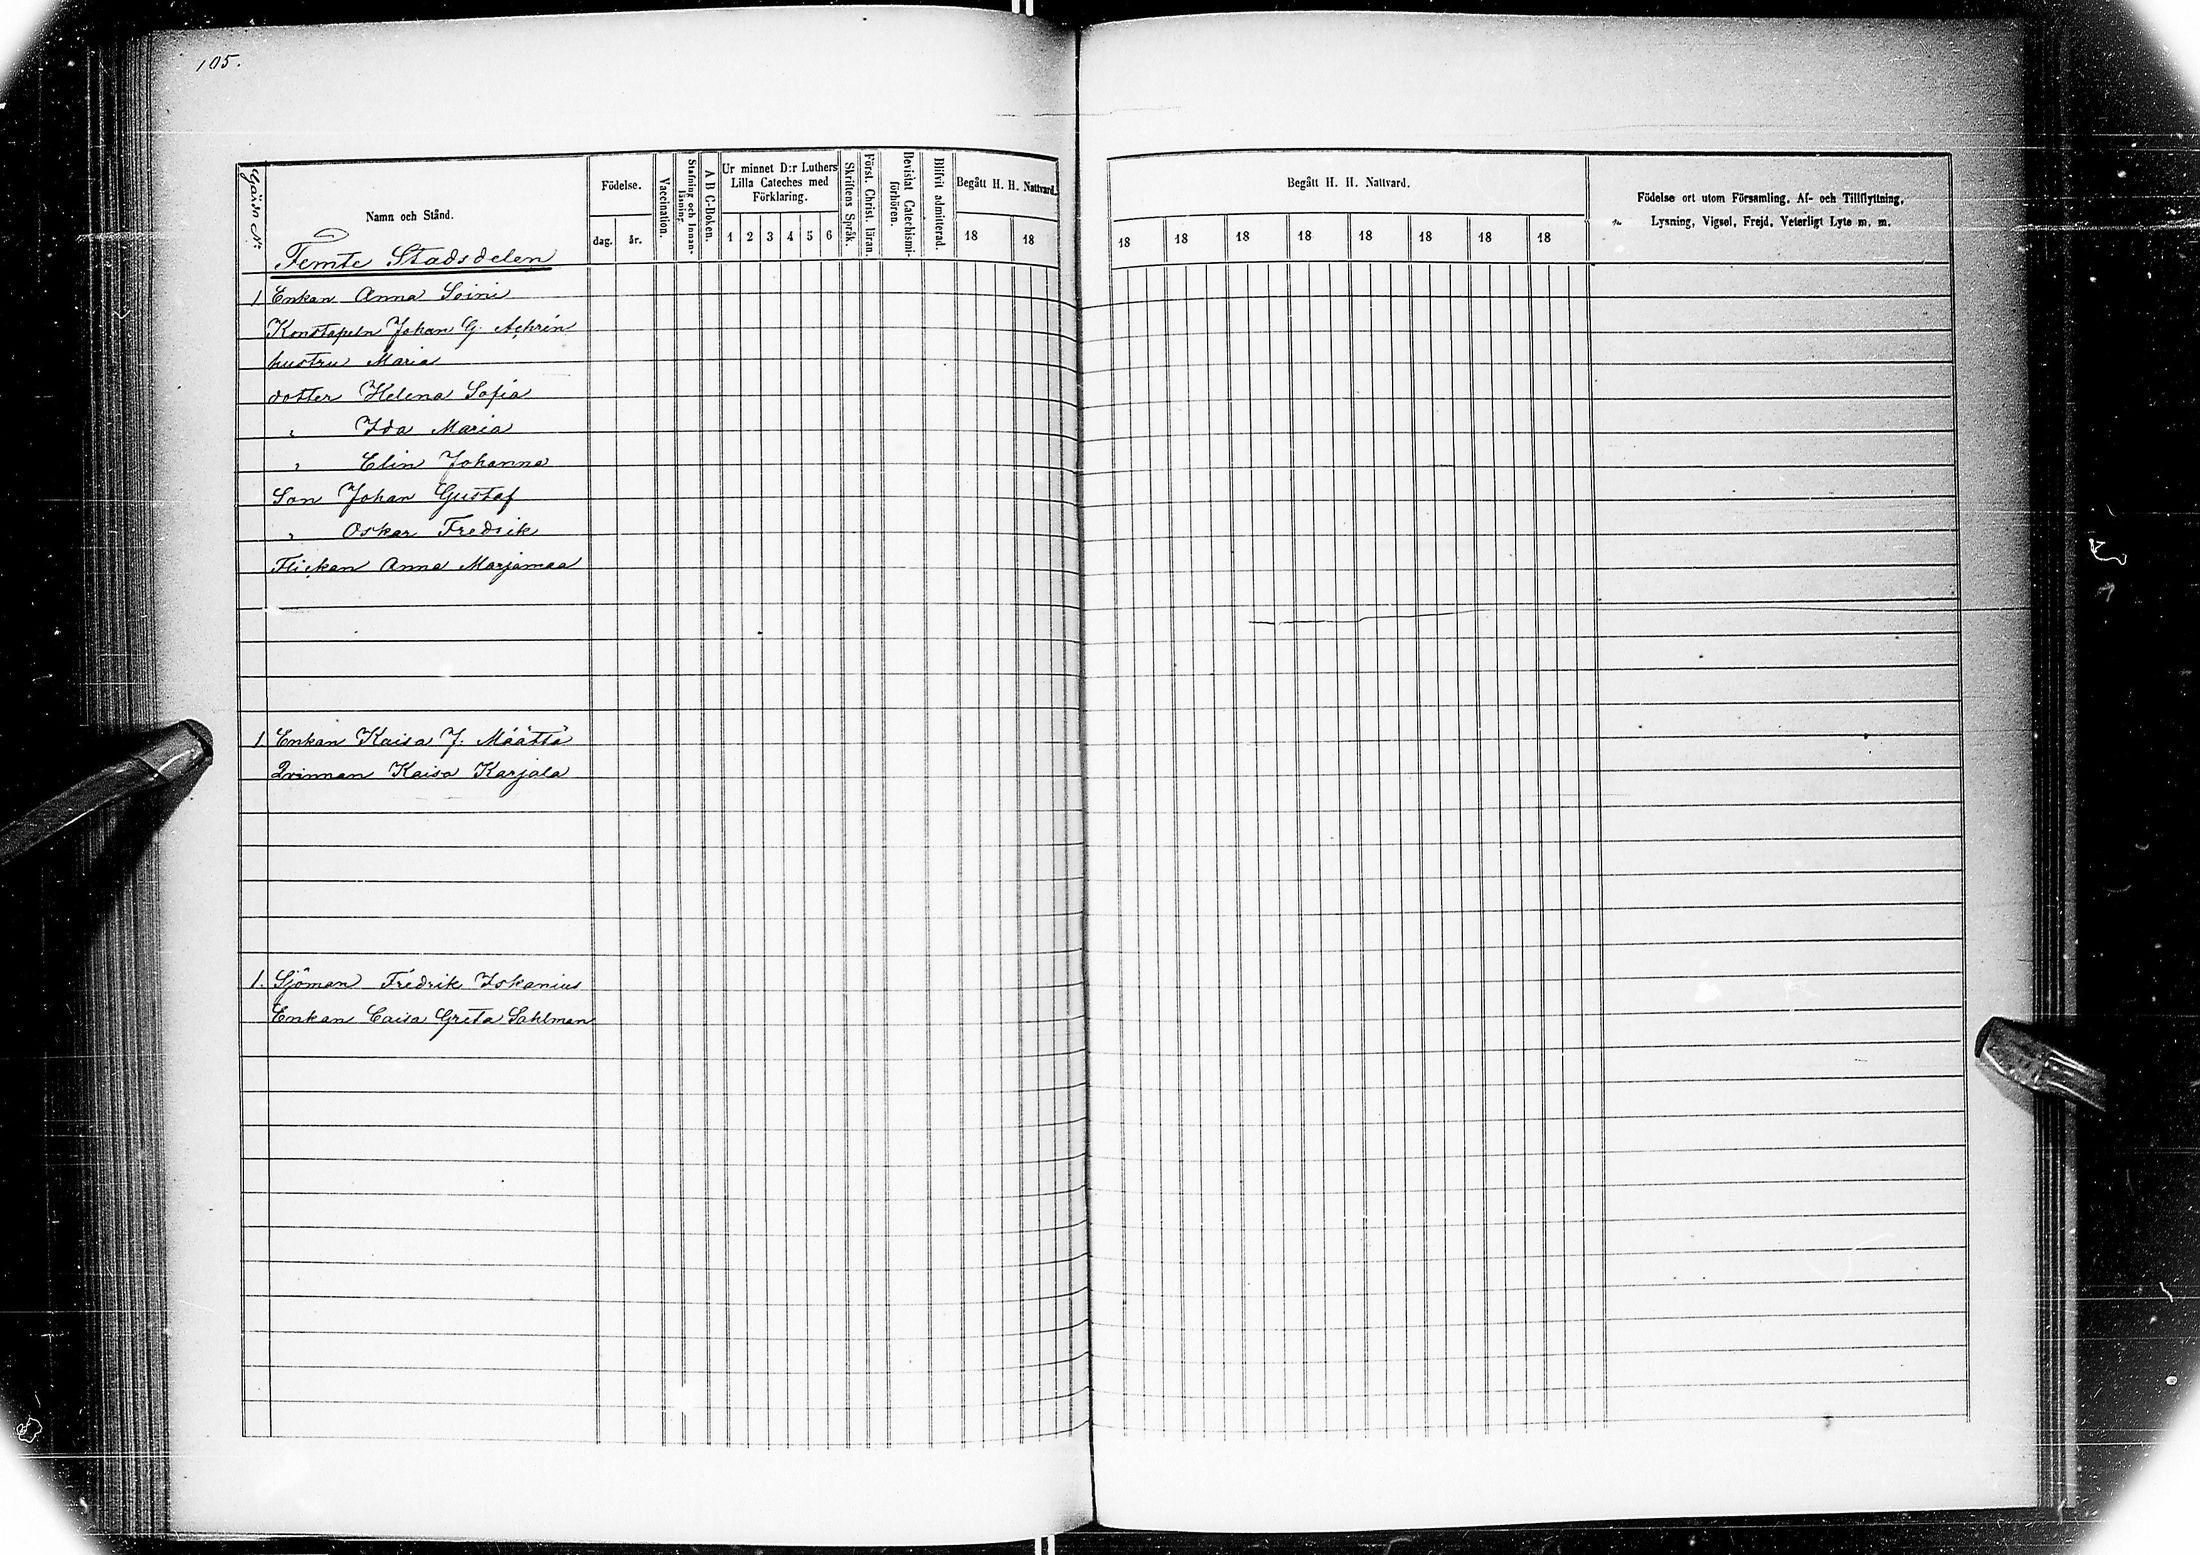 105.
Gårds No
Namn och Stånd.
Födelse.
dag.
år.
Vaccination.
Stafning och Innan-
läsning.
A B C-Boken.
Ur minnet D:r Luthers
Lilla Cateches med
Förklaring.
1 2 3 4 5 6
Skriftens Språk.
Först. Christ. läran.
Bevistat Catechismi-
förhören.
Blifvit admitterad.
Begått H. H. Nattvard.
18 18
Begått H. H. Nattvard.
18 18 18 18 18 18 18 18
Födelse ort utom Församling, Af- och Tillflyttning,
Lysning, Vigsel, Frejd, Veterligt Lyte m. m.
Femte Stadsdelen
1 Enkan Anna Soini
Konstapeln Johan G. Achrén
hustru Maria
dotter Helena Sofia
" Ida Maria
" Elin Johanna
Son Johan Gustaf
" Oskar Fredrik
Flickan Anna Marjamaa
1. Enkan Kaisa J. Määttä
Qvinnan Kaisa Karjala
1. Sjöman Fredrik Iskanius
Enkan Caisa Greta Sahlman